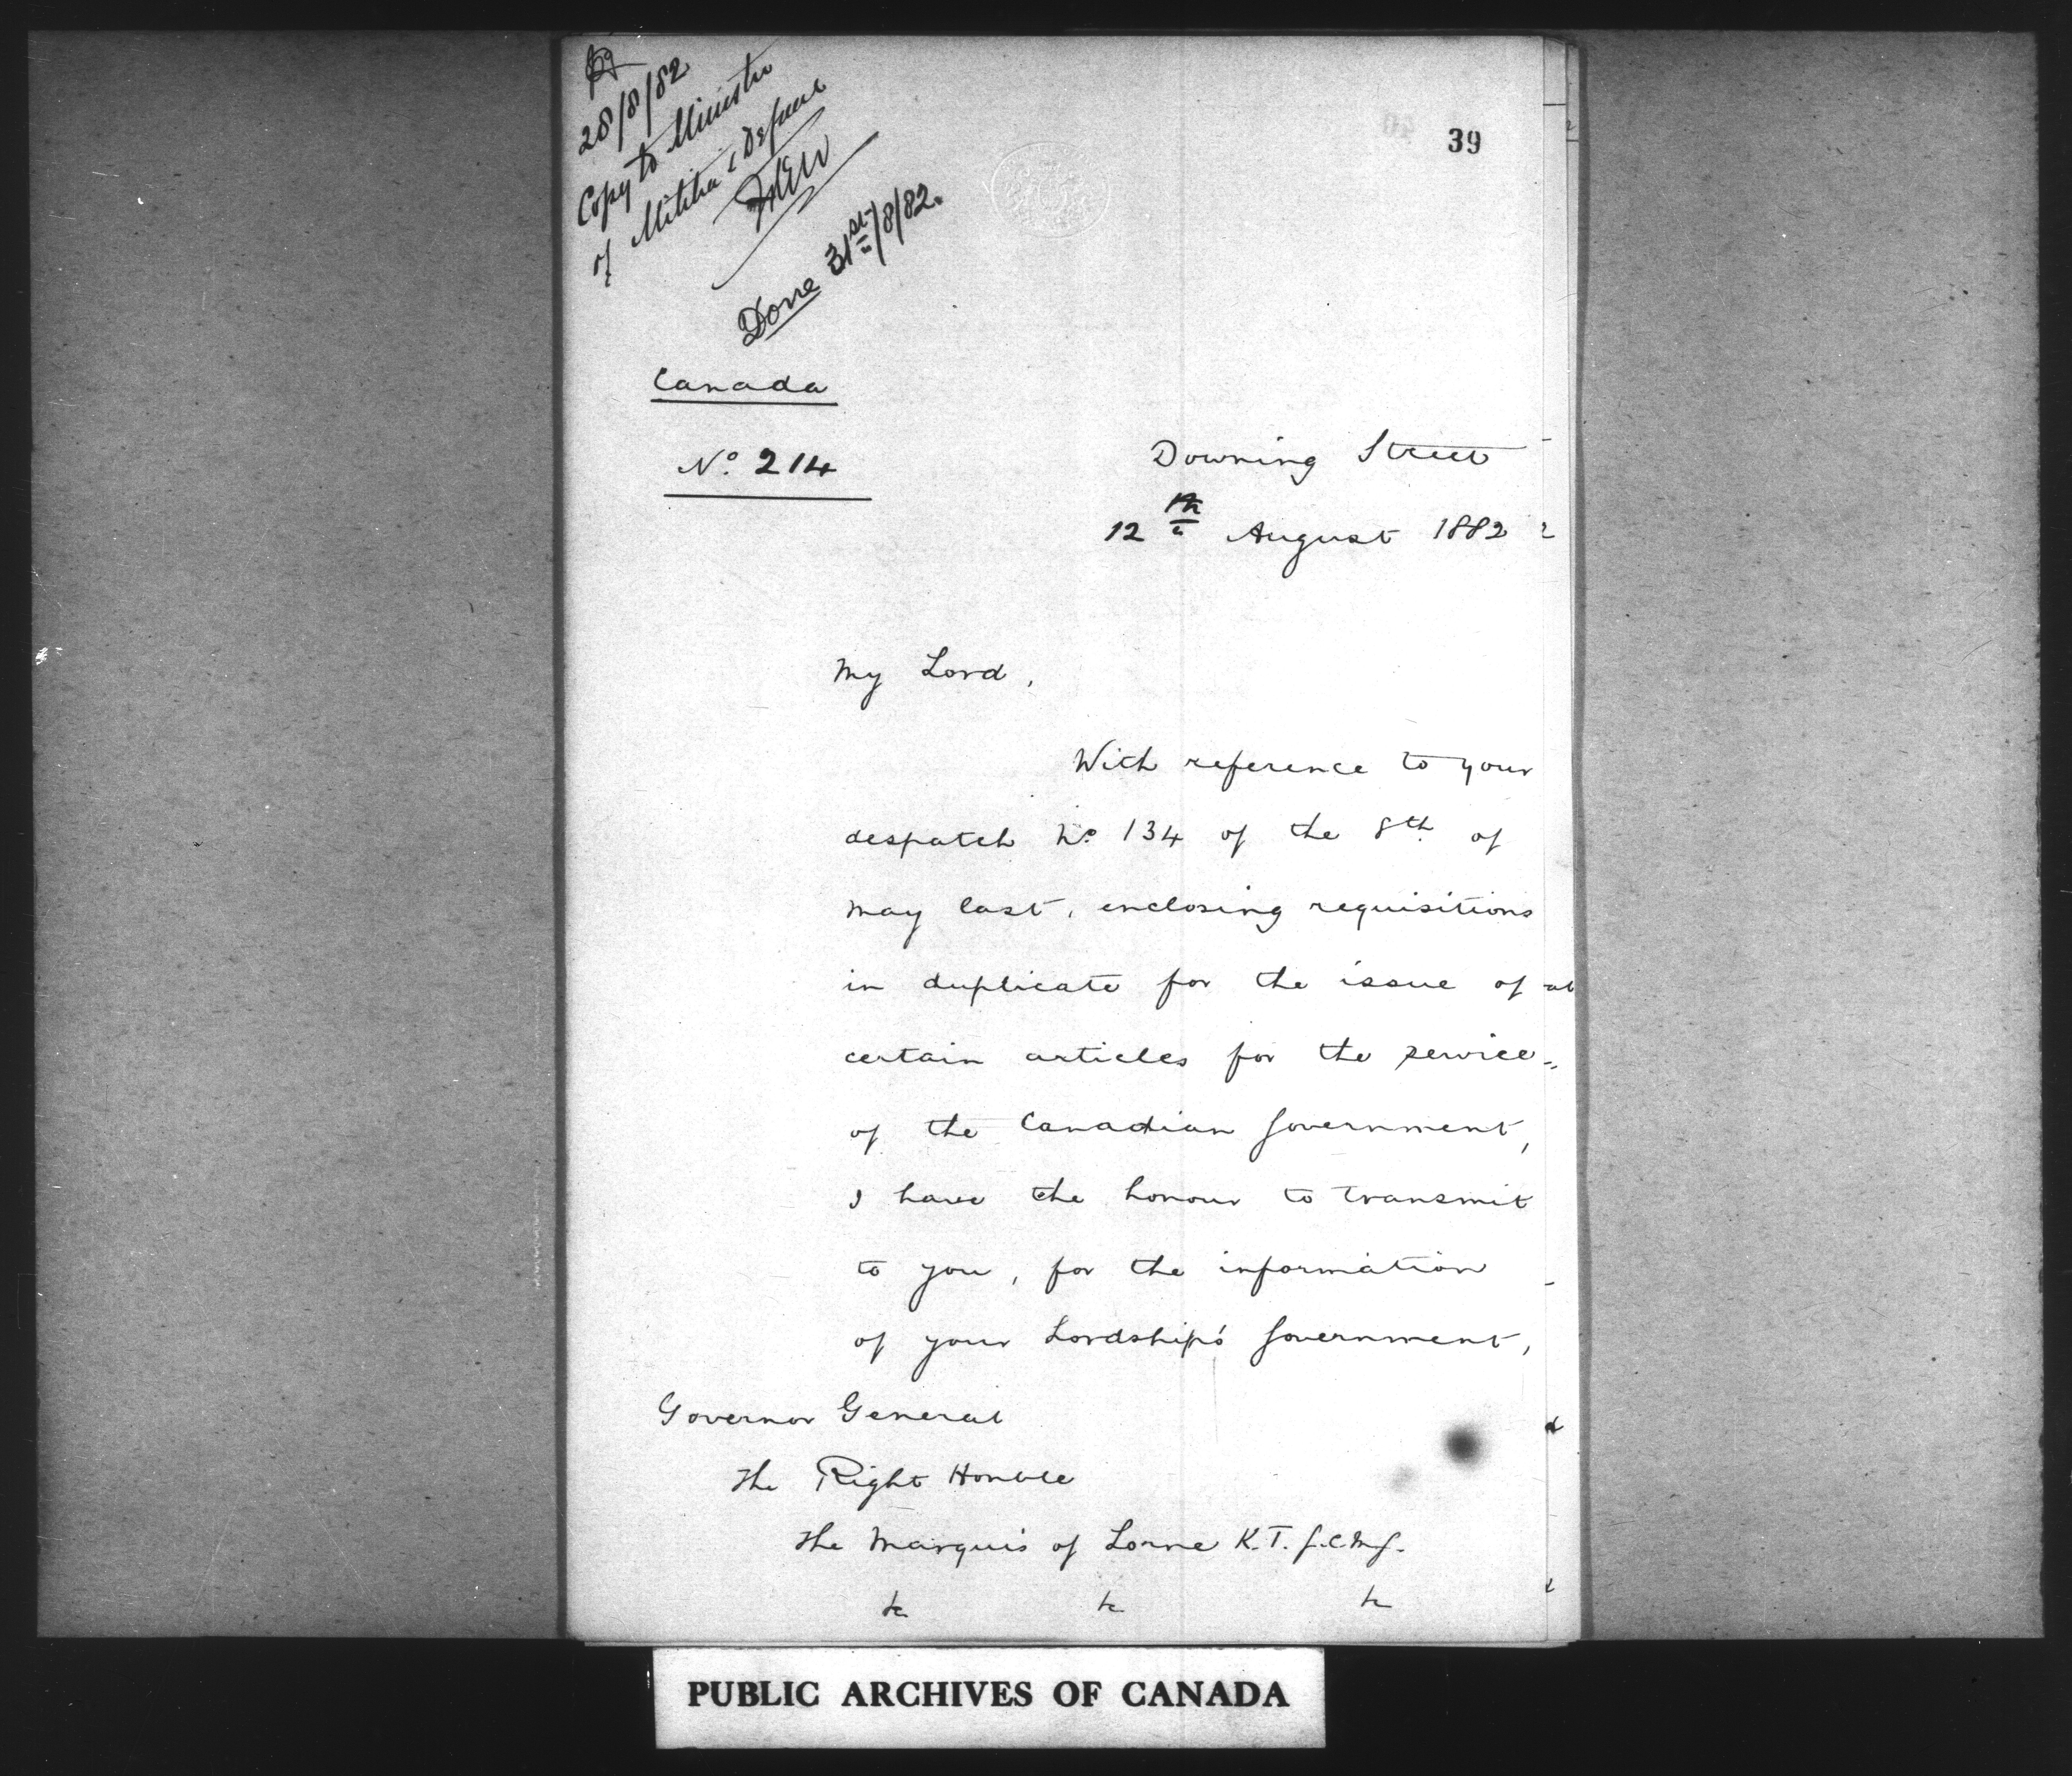 28/8/82
Copy to Minister
of Militia & Defence
Done 31st/8/82.
39
Canada
No. 214
Downing Street
12th August 1882
My Lord,
With reference to your
despatch No. 134 of the 8th of
May last, enclosing requisitions
in duplicate for the issue of
certain articles for the service
of the Canadian Government,
I have the honour to transmit
to you, for the information
of your Lordship's Government,
Governor General
The Right Honble
The Marquis of Lorne K.T. G.C.M.G.
&c &c &c
PUBLIC ARCHIVES OF CANADA